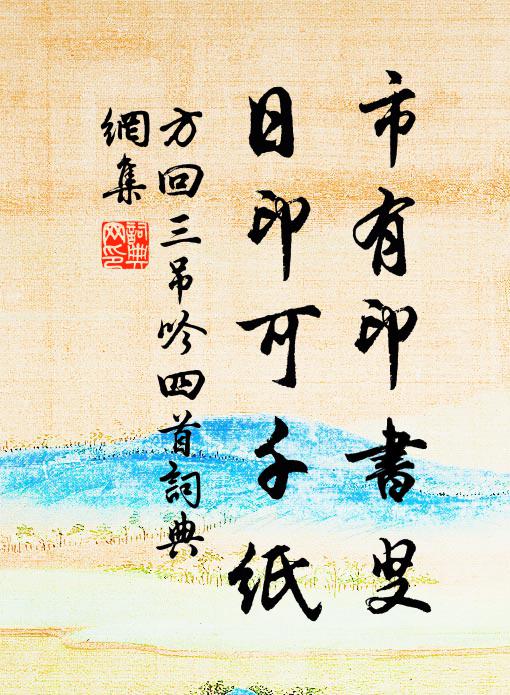 市有印書叟
日印可千紙
方回三吊吟四首詞典
網集
詞典
网印